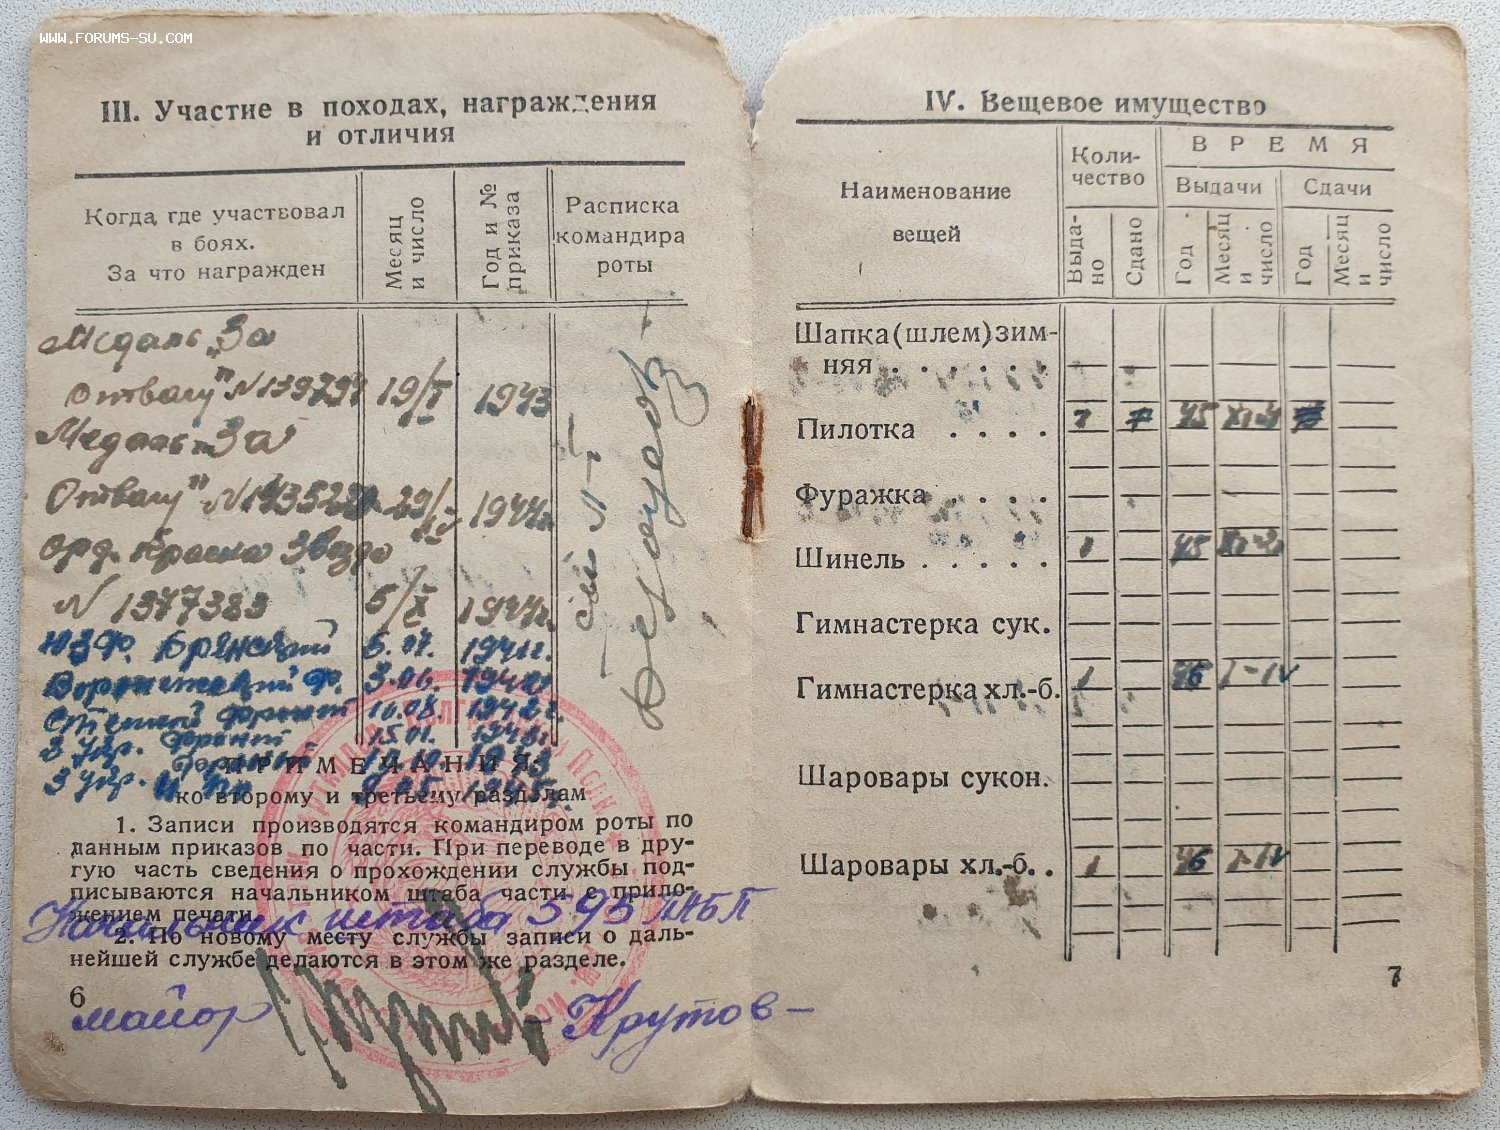 WWW.FORUMS-SU.COM
III. Участие в походах, награждения
и отличия
Когда, где участвовал
в боях.
За что награжден
Месяц
и число
Год и №
приказа
Расписка
командира
роты
Медаль „За
Отвагу" N 139797 19/I 1943
Медаль „За
Отвагу" N 29/IV 1944г.
Орд. Красная Звезда
N 1377383 5/X 1944г.
ЮЗФ. Брянский 6.07. 1941г.
Воронежский Ф. 3.06.
Степной фронт 16.08.
3 Укр. Фронт 15.01.
3 Укр.
ст. л-т
ПРИМЕЧАНИЯ:
ко второму и третьему разделам
1. Записи производятся командиром роты по
данным приказов по части. При переводе в дру-
гую часть сведения о прохождении службы под-
писываются начальником штаба части с прило-
жением печати.
Начальник штаба 595
2. По новому месту службы записи о даль-
нейшей службе делаются в этом же разделе.
6
майор – Крутов –
IV. Вещевое имущество
Наименование
вещей
Коли-
чество
ВРЕМЯ
Выдачи
Сдачи
Выда-
но
Сдано
Год
Месяц
и
число
Год
Месяц
и
число
Шапка (шлем) зим-
няя . . . . . .
Пилотка . . . . 1 45
Фуражка . . . .
Шинель . . . . . 1 45
Гимнастерка сук.
Гимнастерка хл.-б. 1 46 I-IV
Шаровары сукон.
Шаровары хл.-б. . 1 46 I-IV
7